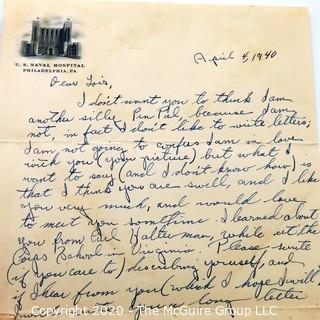 U. S. NAVAL HOSPITAL
PHILADELPHIA, PA.
April 4, 1940
Dear Lois,
I don't want you to think I am
another silly Pin Pal, because I am
not, in fact I don't like to write letters;
I am not going to confess I am in love
with you (your picture) but what I
want to say (and I don't know how) is
that I think you are swell, and I like
you very much, and would love
to meet you sometime. I learned about
you from Earl Halterman, while at the
Corps School in Virginia. Please write
(if you care to) describing yourself, and
if I hear from you (which I hope I will)
long letter
Copyright 2020 - Applegate Books